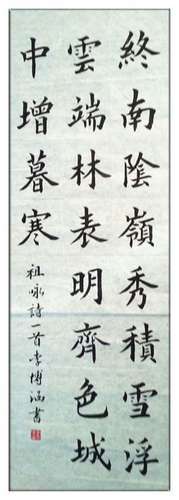 終南陰嶺秀積雪浮
雲端林表明齊色城
中增暮寒
祖咏詩一首李博涵書